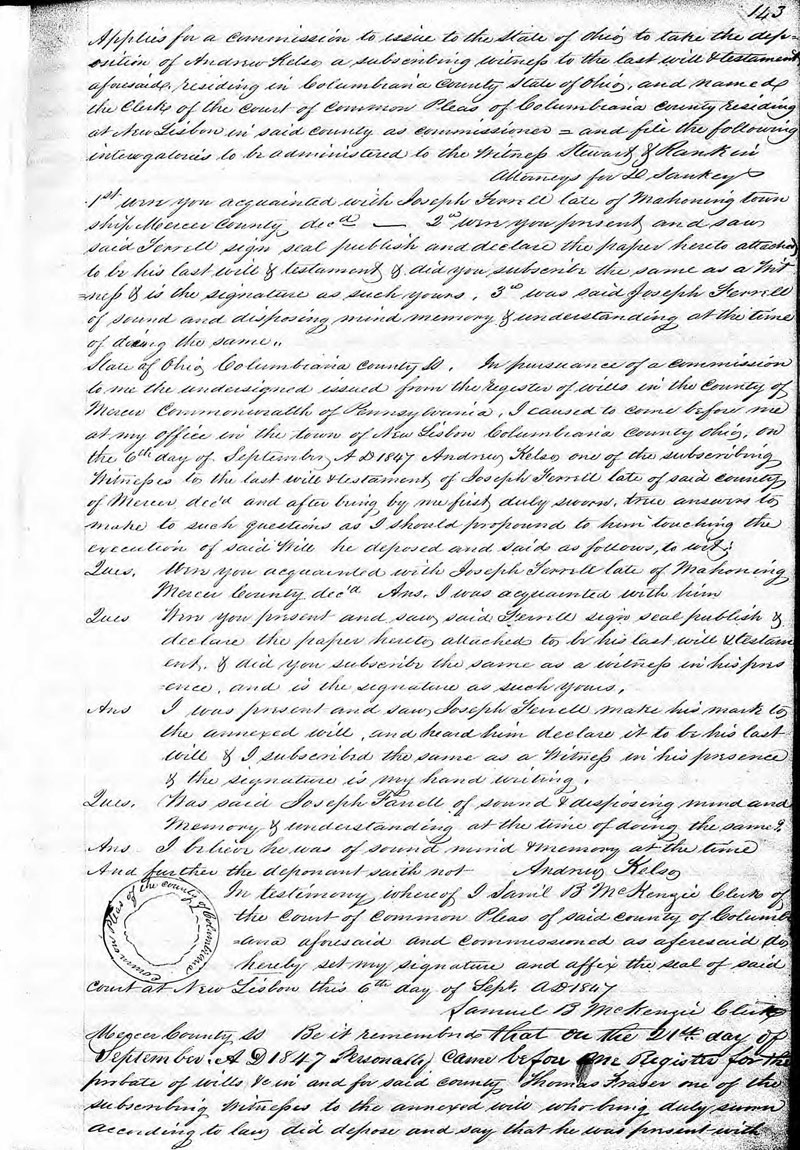 143
Applies for a commission to issue to the State of Ohio to take the dep=
osition of Andrew Kelso a subscribing witness to the last will & testament
aforesaid, residing in Columbiana County State of Ohio, and named
the Clerk of the court of Common Pleas of Columbiana county residing
at New Lisbon in said county as commissioner = and file the following
interogatoriis to be administered to the Witness Stewart & Rankin
Attorneys for D Sankey
1st Were you acquainted with Joseph Ferrell late of Mahoning town
ship Mercer County decd — 2nd were you present and saw
said Ferrell sign seal publish and declare the paper hereto attached
to be his last will & testament & did you subscribe the same as a Wit
=ness & is the signature as such yours. 3rd was said Joseph Ferrell
of sound and disposing mind memory & understanding at the time
of doing the same..
State of Ohio Columbiana County SS. In pursuance of a commission
to me the undersigned issued from the register of wills in the county of
Mercer Commonwealth of Pennsylvania, I caused to come before me
at my office in the town of New Lisbon Columbiana county Ohio, on
the 6th day of September A D 1847 Andrew Kelso one of the subscribing
Witnesses to the last will & testament of Joseph Ferrell late of said county
of Mercer dec'd and after being by me first duly sworn, true answers to
make to such questions as I should propound to him touching the
execution of said Will he deposed and said as follows, to wit:
Ques. Were you acquainted with Joseph Ferrell late of Mahoning
Mercer County dec'd Ans. I was acquainted with him
Ques Were you present and saw said Ferrell sign seal publish &
declare the paper hereto attached to be his last will & testam
ent. & did you subscribe the same as a witness in his pres
=ence, and is the signature as such yours.
Ans I was present and saw Joseph Ferrell make his mark to
the annexed will, and heard him declare it to be his last
will & I subscribed the same as a Witness in his presence
& the signature is my hand writing.
Ques. Was said Joseph Farrell of sound & disposing mind and
Memory & understanding at the time of doing the same?
Ans I believe he was of sound mind & memory at the time
And further the deponant saith not Andrew Kelso
Common Pleas of the county of Columbiana
In testimony whereof I Saml B McKenzie Clerk of
the Court of Common Pleas of said county of Columbi
=ana aforesaid and commissioned as aforesaid do
hereby set my signature and affix the seal of said
Court at New Lisbon this 6th day of Sept. AD 1847
Samuel B McKenzie Clerk
Mercer County SS Be it remembrd that on the 21st day of
September A D 1847 Personally came before me Register for the
probate of wills &c in and for said county Thomas Fraser one of the
subscribing Witnesses to the annexed will who being duly sworn
according to law did depose and say that he was present with